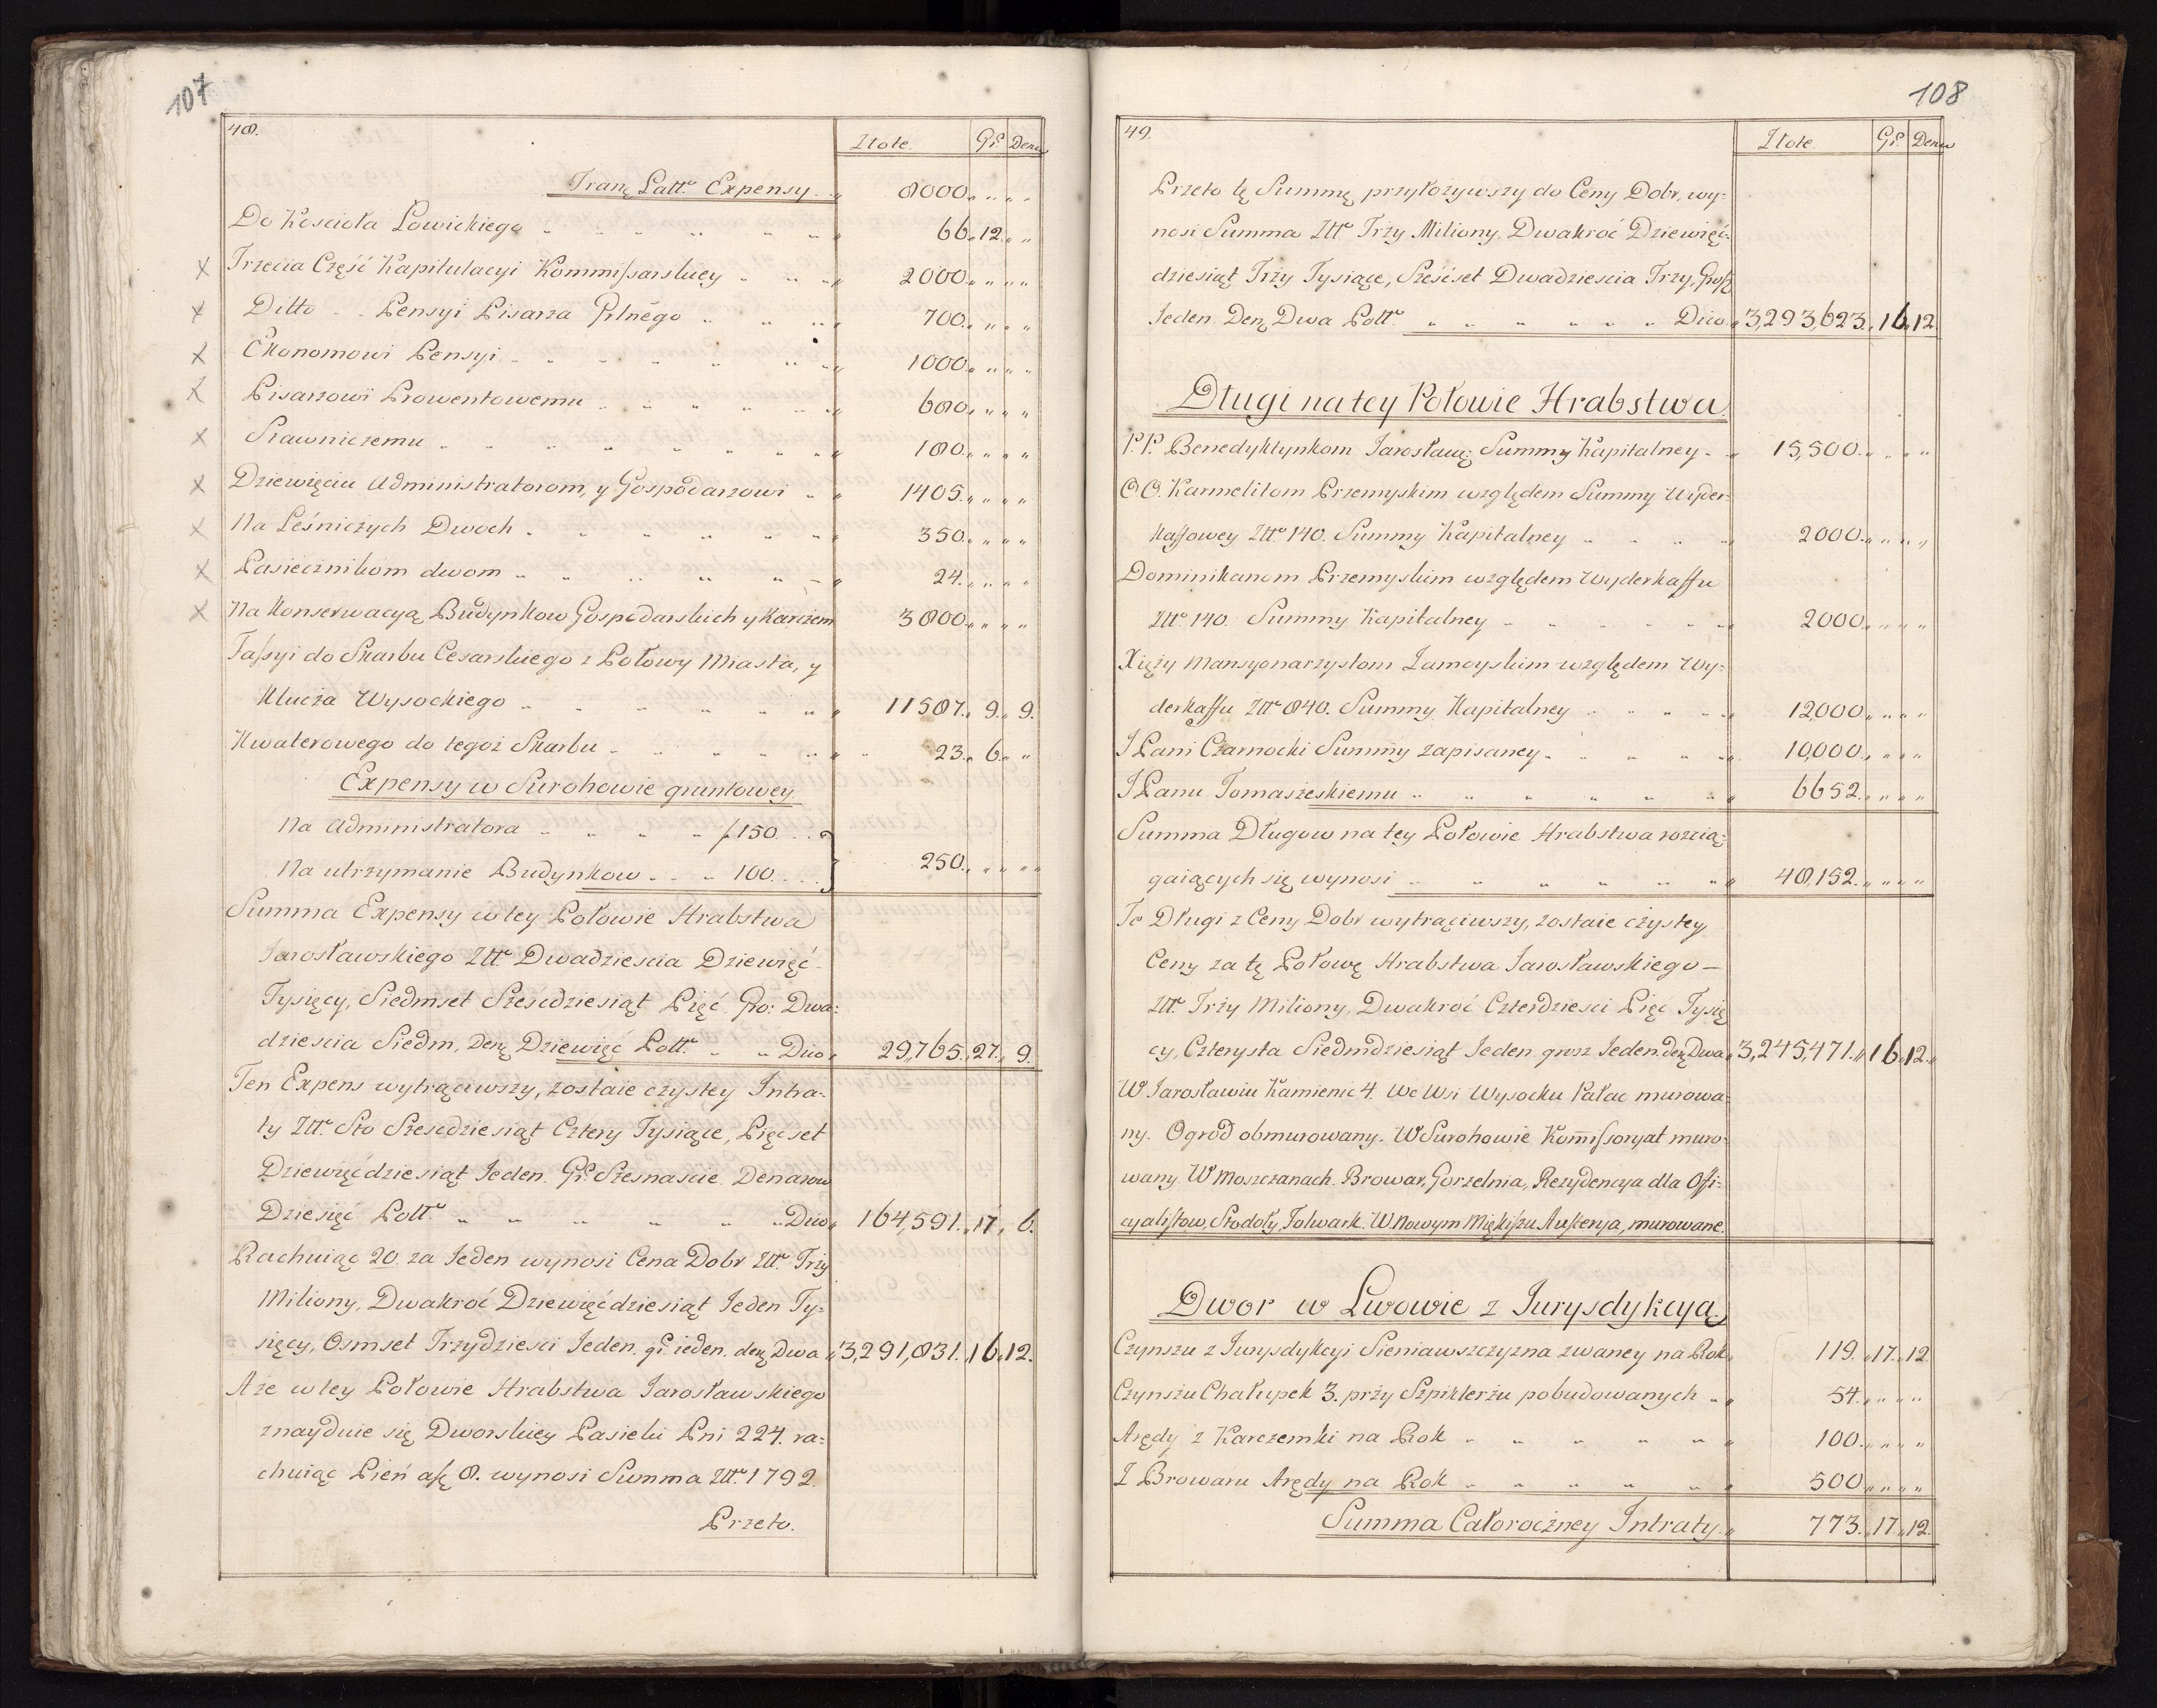 107
48.
Złote. Gr. Denar
Tranz Latt. Expensy. 8000.
Do Kościoła Łowickiego 66. 12.
Trzecia Część Kapitulacyi Kommissarskiey 2000.
Ditto Pensyi Pisarza Gr̃lnego 700.
Ekonomowi Pensyi 1000.
Pisarzowi Prowentowemu 600.
Stawniczemu 180.
Dziewięciu Administratorom, y Gospodarzowi 1405.
Na Leśniczych Dwoch 350.
Pasiecznikom dwom 24.
Na Konserwacyą Budynkow Gospodarskich y Karczem 3800.
Tassyi do Skarbu Cesarskiego z Połowy Miasta, y
Klucza Wysockiego 11587. 9. 9.
Kwaterowego do tegoż Skarbu 23. 6.
Expensy w Surohowie gruntowey.
Na Administratora f 150.
Na utrzymanie Budynkow 100. 250.
Summa Expensy w tey Połowie Hrabstwa
Jarosławskiego Złł. Dwadziescia Dziewięć
Tysięcy, Siedmset Szesćdziesiąt Pięć Gro: Dwa:
dziescia Siedm, Denę Dziewięć Poll. Dico 29,765. 27. 9.
Ten Expens wytrąciwszy, zostaie czystey Intra:
ty Złł. Sto Szesćdziesiąt Cztery Tysiące, Pięcset
Dziewięćdziesiąt Jeden. Gr. Szesnascie Denarow
Dziesięć Poll. Dico 164,591. 17. 6.
Rachuiąc 20. za Jeden wynosi Cena Dobr Złł. Trzy
Miliony, Dwakroć Dziewięćdziesiąt Jeden Ty:
sięcy, Osmset Trzydziesci Jeden. gr. ieden. denę Dwa 3,291,831. 16. 12.
A że w tey Połowie Hrabstwa Jarosławskiego
znayduie się Dworskiey Pasieki Pni 224. ra:
chuiąc Pień a fł 8. wynosi Summa Złł. 1792.
Przeto.
108
49.
Złote. Gr. Denar
Przeto tę Summę przyłożywszy do Ceny Dobr, wy:
nosi Summa Złł. Trzy Miliony, Dwakroć Dziewięć:
dziesiąt Trzy Tysiące, Sześćset Dwadziescia Trzy, Grosz
Jeden Denę Dwa Poll. Dico 3,293,623. 16. 12.
Długi na tey Połowie Hrabstwa.
P.P. Benedyktynkom Jarosławs: Summy Kapitalney 15,500.
OO. Karmelitom Przemyskim względem Summy Wyder:
kassowey Złł. 140. Summy Kapitalney 2000.
Dominikanom Przemyskim względem Wyderkassu
Złł. 140. Summy Kapitalney 2000.
Xięży Mansyonarzystom Zamoyskim względem Wy:
derkassu Złł. 840. Summy Kapitalney 12,000.
J Pani Czarnocki Summy zapisaney 10,000.
J Panu Tomaszeskiemu 6652.
Summa Długow na tey Połowie Hrabstwa rozcią:
gaiących się wynosi 48,152.
Te Długi z Ceny Dobr wytrąciwszy, zostaie czystey
Ceny za tę Połowę Hrabstwa Jarosławskiego
Złł. Trzy Miliony, Dwakroć Czterdziesci Pięć Tysię
cy, Czterysta Siedmdziesiąt Jeden grosz Jeden denę Dwa 3,245,471. 16. 12.
W Jarosławiu Kamienic 4. We Wsi Wysocku Pałac murowa:
ny. Ogrod obmurowany. W Surohowie Kom̃issoryat muro:
wany. W Moszczanach. Browar, Gorzelnia, Rezydencya dla Offi:
cyalistow, Stodoły, Folwark. W Nowym Miękiszu Austerya, murowane.
Dwor w Lwowie z Jurysdykcyą.
Czynszu z Jurysdykcyi Sieniawszczyzna zwaney na Rok 119. 17. 12.
Czynszu Chałupek 3. przy Szpiklerzu pobudowanych 54.
Arędy z Karczemki na Rok 100.
Z Browaru Arędy na Rok 500.
Summa Całoroczney Intraty 773. 17. 12.